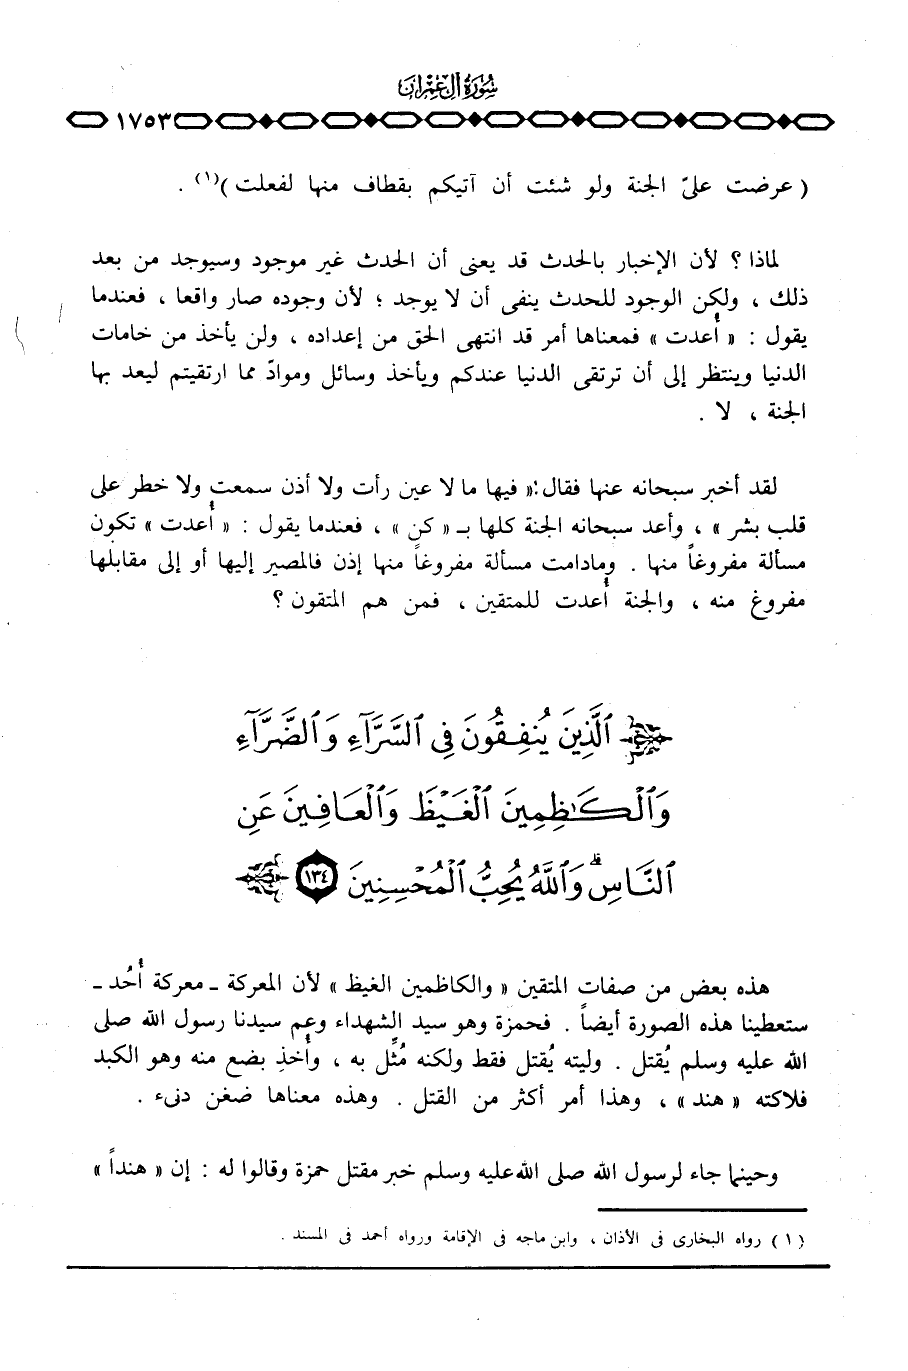 سورة آل عمران
١٧٥٣
( عرضت علىّ الجنة ولو شئت أن آتيكم بقطاف منها لفعلت )(١) .
لماذا ؟ لأن الإخبار بالحدث قد يعنى أن الحدث غير موجود وسيوجد من بعد
ذلك ، ولكن الوجود للحدث ينفى أن لا يوجد ؛ لأن وجوده صار واقعا ، فعندما
يقول : « أُعدت » فمعناها أمر قد انتهى الحق من إعداده ، ولن يأخذ من خامات
الدنيا وينتظر إلى أن ترتقى الدنيا عندكم ويأخذ وسائل وموادّ مما ارتقيتم ليعد بها
الجنة ، لا .
لقد أخبر سبحانه عنها فقال :« فيها ما لا عين رأت ولا أذن سمعت ولا خطر على
قلب بشر » ، وأعد سبحانه الجنة كلها بـ « كن » ، فعندما يقول : « أُعدت » تكون
مسألة مفروغاً منها . ومادامت مسألة مفروغاً منها إذن فالمصير إليها أو إلى مقابلها
مفروغ منه ، والجنة أُعدت للمتقين ، فمن هم المتقون ؟
ٱلَّذِينَ يُنفِقُونَ فِى ٱلسَّرَّآءِ وَٱلضَّرَّآءِ
وَٱلْكَـٰظِمِينَ ٱلْغَيْظَ وَٱلْعَافِينَ عَنِ
ٱلنَّاسِ ۗ وَٱللَّهُ يُحِبُّ ٱلْمُحْسِنِينَ ١٣٤
هذه بعض من صفات المتقين « والكاظمين الغيظ » لأن المعركة ـ معركة أُحُد ـ
ستعطينا هذه الصورة أيضاً . فحمزة وهو سيد الشهداء وعم سيدنا رسول الله صلى
الله عليه وسلم يُقتل . وليته يُقتل فقط ولكنه مُثِّل به ، وأُخذِ بضع منه وهو الكبد
فلاكته « هند » ، وهذا أمر أكثر من القتل . وهذه معناها ضغن دنىء .
وحينما جاء لرسول الله صلى الله عليه وسلم خبر مقتل حمزة وقالوا له : إن « هنداً »
( ١ ) رواه البخارى فى الأذان ، وابن ماجه فى الإقامة ورواه أحمد فى المسند .